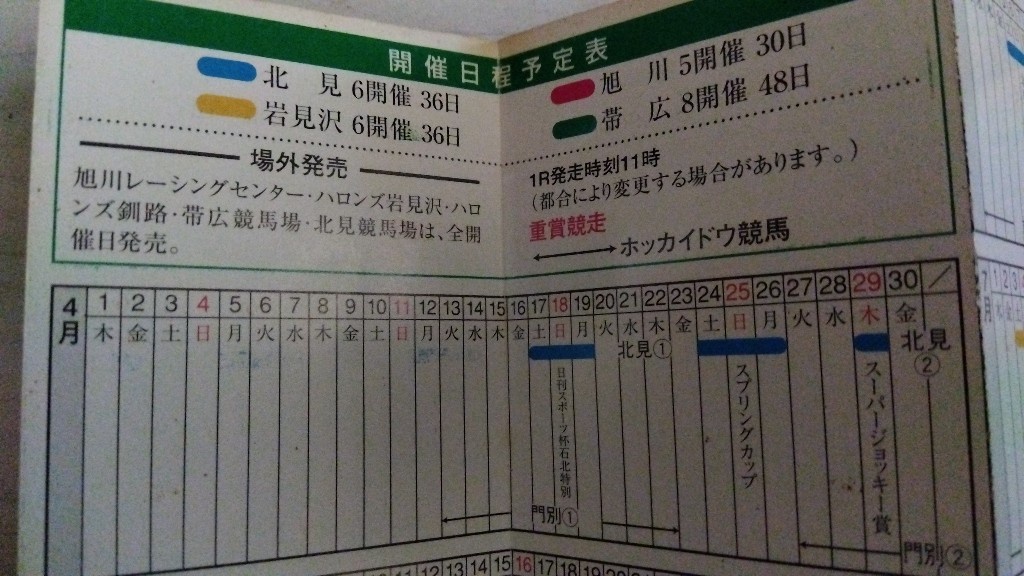 開催日程予定表
北見 6開催 36日
岩見沢 6開催 36日
旭川 5開催 30日
帯広 8開催 48日
場外発売
旭川レーシングセンター・ハロンズ岩見沢・ハロ
ンズ釧路・帯広競馬場・北見競馬場は、全開
催日発売。
1R発走時刻11時
(都合により変更する場合があります。)
重賞競走
ホッカイドウ競馬
4月 1 2 3 4 5 6 7 8 9 10 11 12 13 14 15 16 17 18 19 20 21 22 23 24 25 26 27 28 29 30 /
木 金 土 日 月 火 水 木 金 土 日 月 火 水 木 金 土 日 月 火 水 木 金 土 日 月 火 水 木 金
北見①
北見②
日刊スポーツ杯石北特別
スプリングカップ
スーパージョッキー賞
門別①
門別②
15 16 17 18 19 20
7月 1 2 3